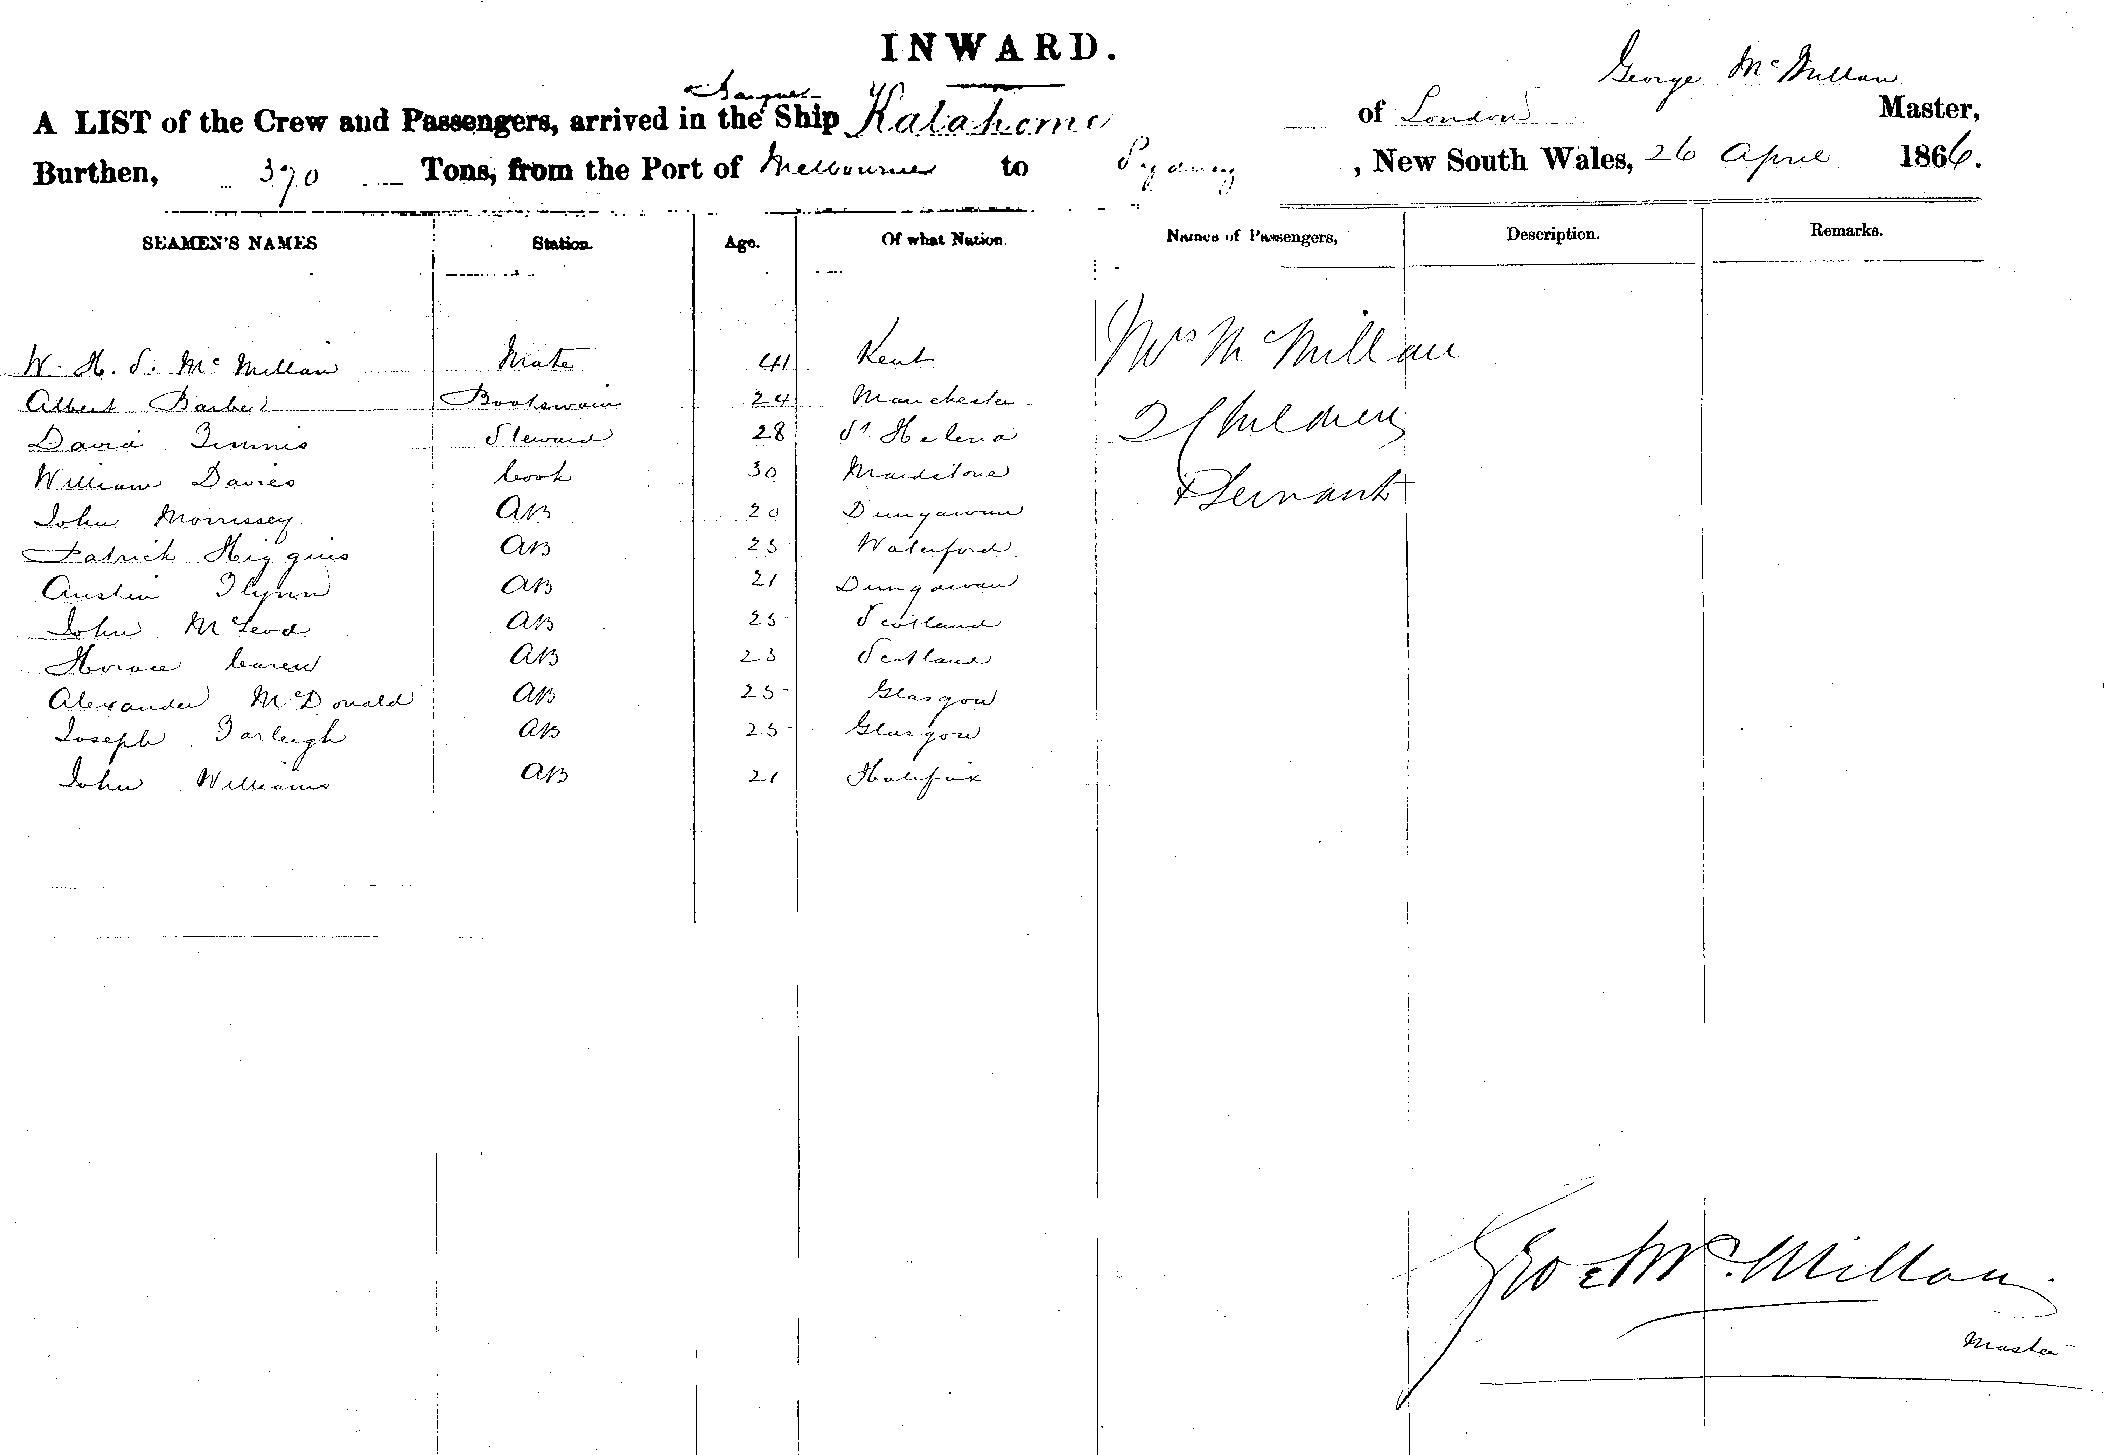 INWARD.
George McMillan
Barque
A LIST of the Crew and Passengers, arrived in the Ship Kalahome of London Master,
Burthen, 370 Tons, from the Port of Melbourne to Sydney, New South Wales, 26 April 1866.
SEAMEN'S NAMES Station. Age. Of what Nation. Names of Passengers, Description. Remarks.
W. H. S. McMillan Mate 41 Kent Mrs McMillan
Albert Barber Boatswain 24 Manchester 2 Children
David Timmis Steward 28 St Helena
William Davies Cook 30 Maidstone & Servant
John Morrissey AB 20 Dungarvan
Patrick Higgins AB 25 Waterford
Austin Flynn AB 21 Dungarvan
John McLeod AB 25 Scotland
Horace AB 23 Scotland
Alexander McDonald AB 25 Glasgow
Joseph Farleigh AB 25 Glasgow
John Williams AB 21 Halifax
Geo McMillan
Master